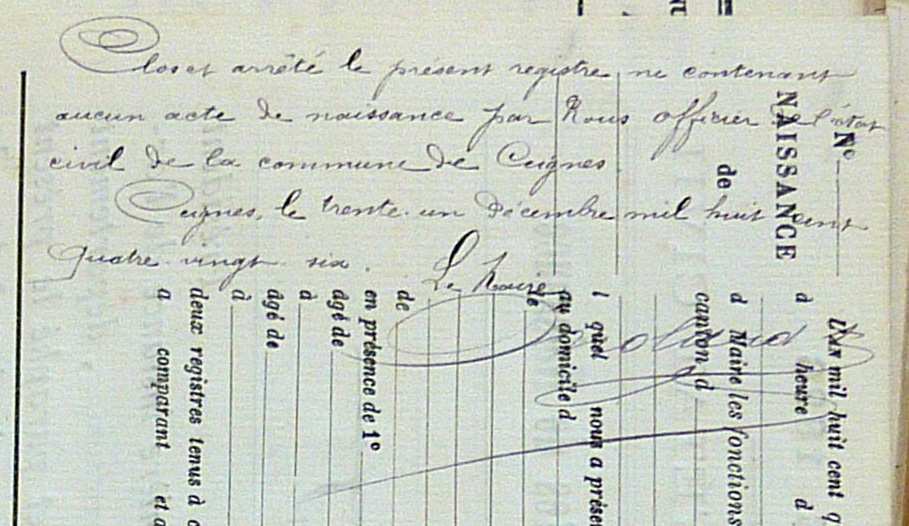 Clos et arrêté le présent registre ne contenant
aucun acte de naissance par Nous officier de l'état
civil de la commune de Ceignes
Ceignes, le trente-un Décembre mil huit cent
quatre-vingt-six.
Le Maire
N°
NAISSANCE
de
L'an mil huit cent q
à heure d
d Maire les fonctions
canton d
l quel nous a présen
au domicile d
le
de
en présence de 1°
âgé de
à
âgé de
à
deux registres tenus à c
a comparant et a